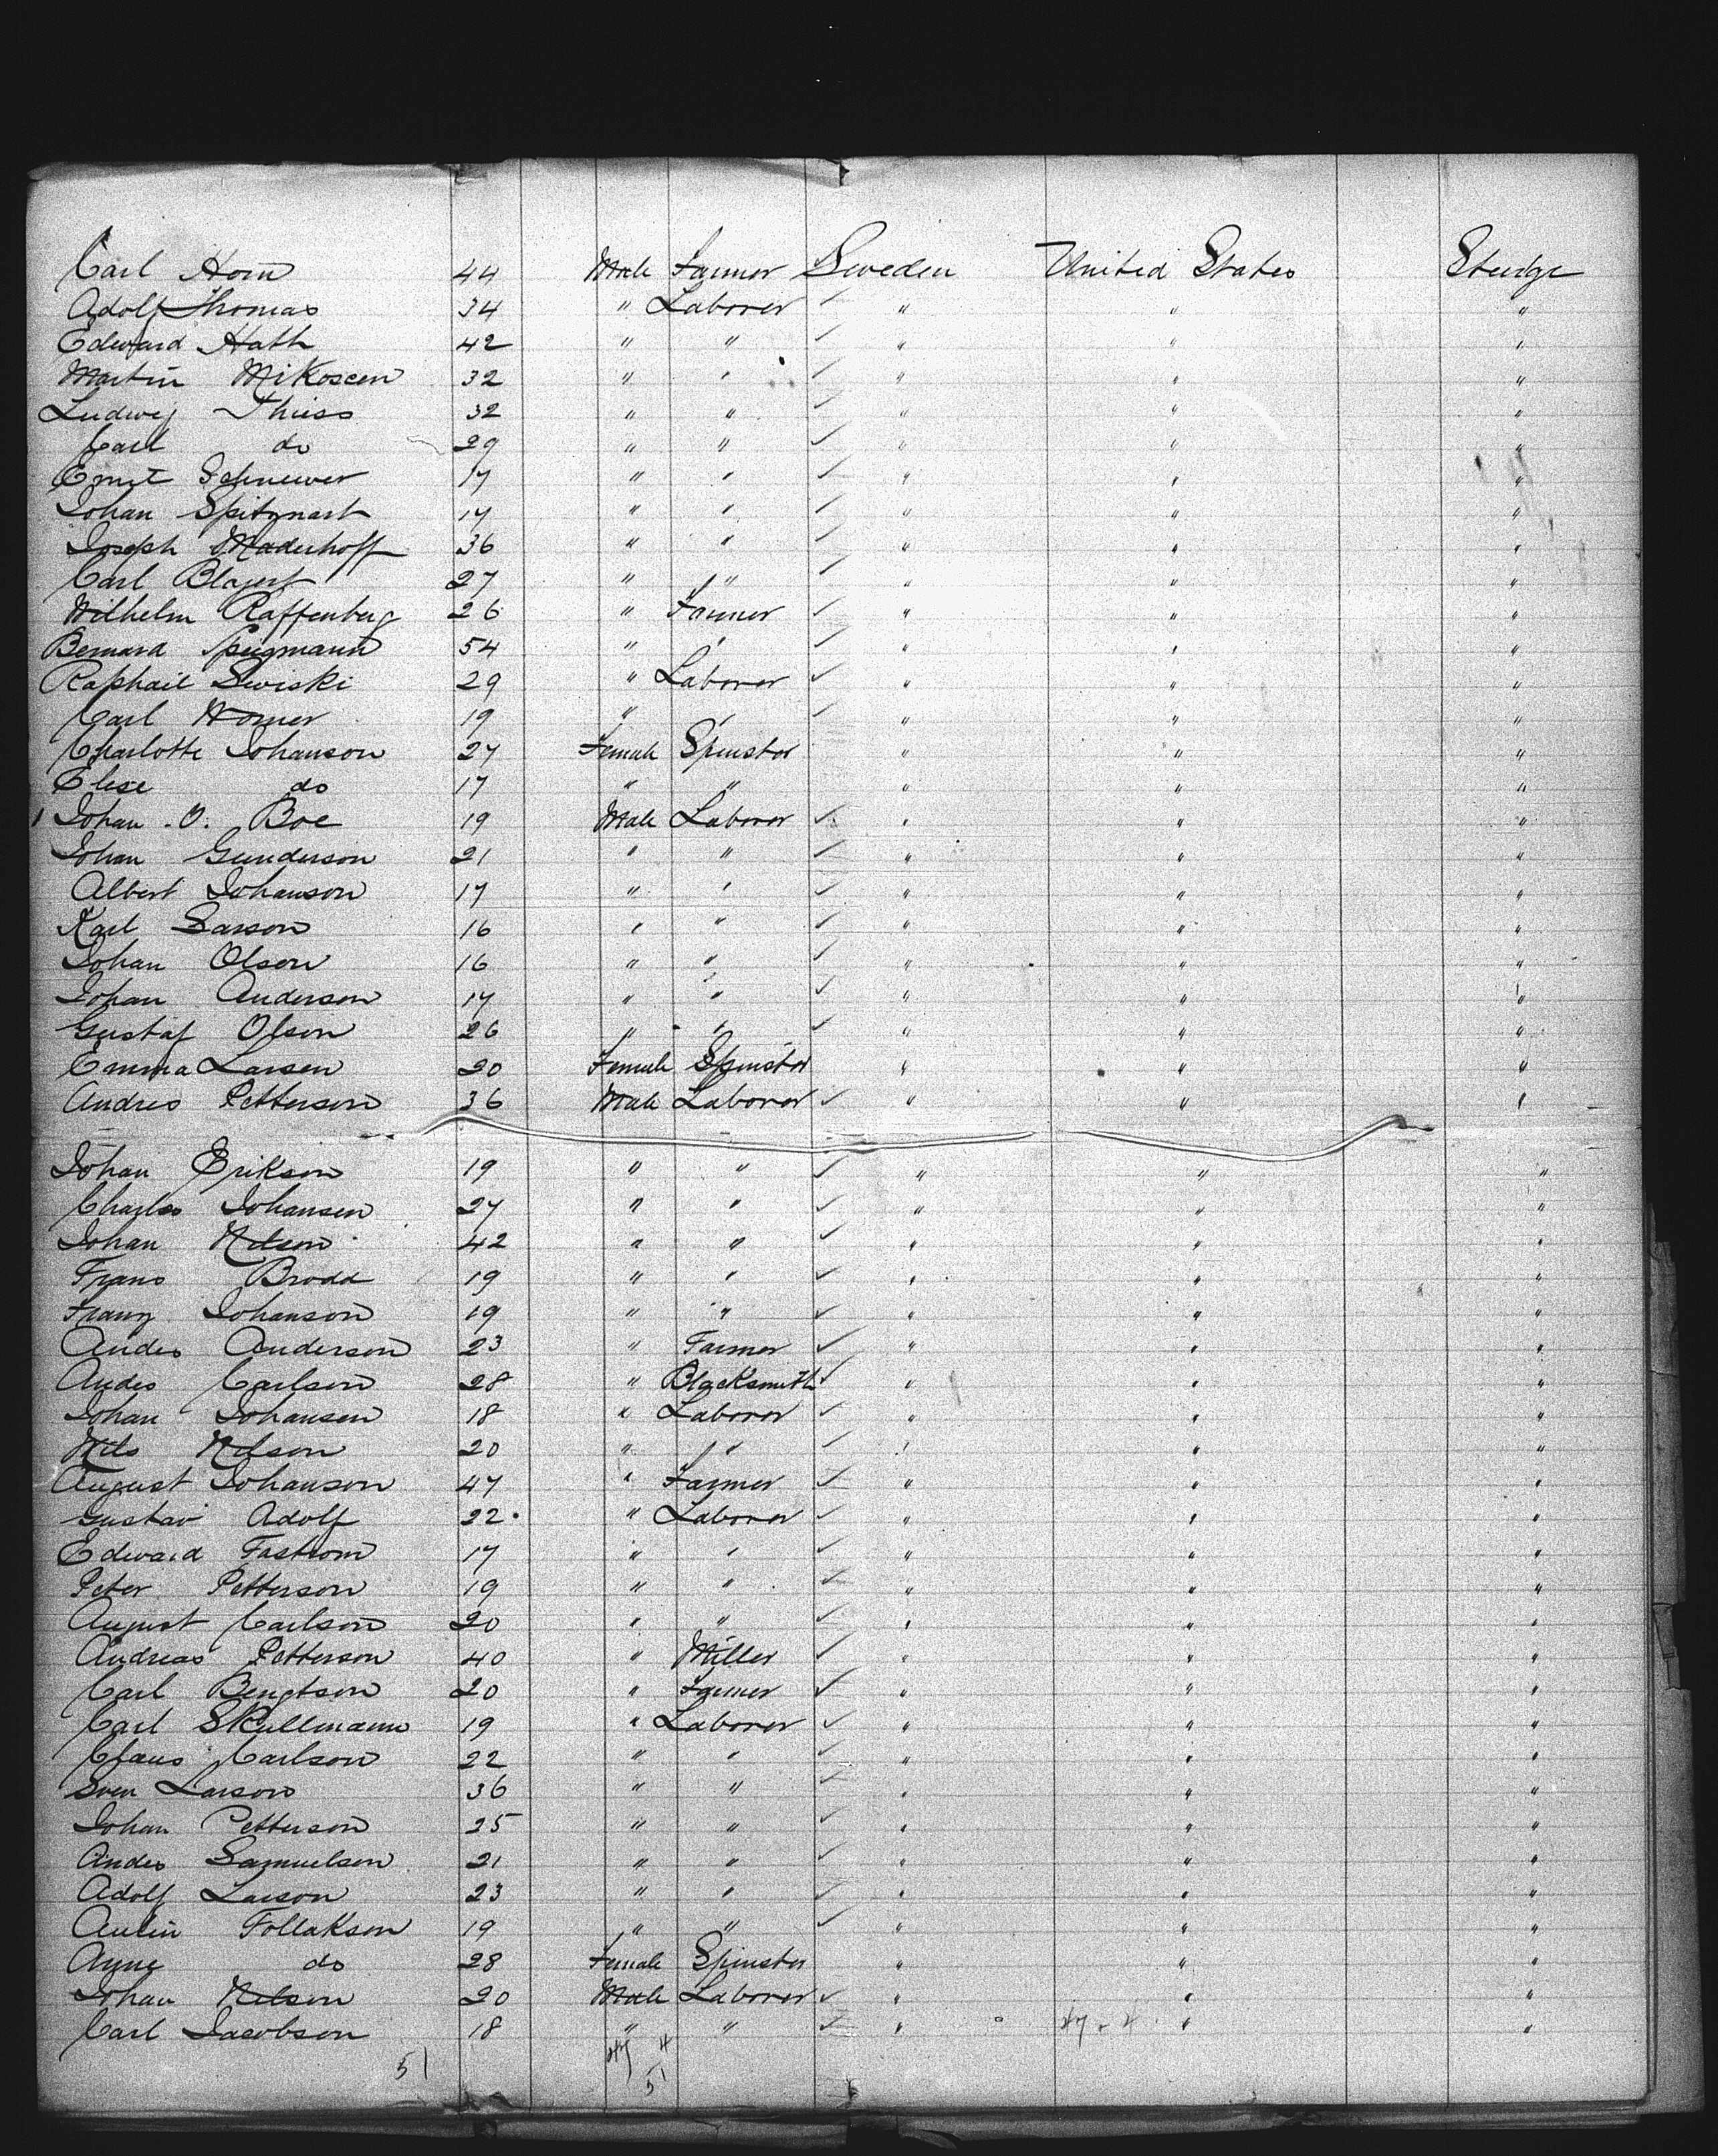 Carl Horn 44 Male Farmer Sweden United States Steerage
Adolf Thomas 34 " Laborer ✓ " " "
Edward Hath 42 " " ✓ " " "
Martin Mikoscen 32 " " ✓ " " "
Ludwig Thiess 32 " " ✓ " " "
Carl do 29 " " ✓ " " "
Ernst 17 " " ✓ " " "
Johan Spitznart 17 " " ✓ " " "
Joseph Maderhoff 36 " " ✓ " " "
Carl Blajert 27 " " ✓ " " "
Wilhelm Raffenberg 26 " Farmer ✓ " " "
Bernard 54 " " ✓ " " "
Raphail Swiski 29 " Laborer ✓ " " "
Carl Womer 19 " " ✓ " " "
Charlotte Johanson 27 Female Spinster " " "
Elise do 17 " " " " "
1 Johan O. Boe 19 Male Laborer ✓ " " "
Johan Gunderson 21 " " ✓ " " "
Albert Johanson 17 " " ✓ " " "
Karl Larson 16 " " ✓ " " "
Johan Olson 16 " " ✓ " " "
Johan Anderson 17 " " ✓ " " "
Gustaf Olson 26 " " ✓ " " "
Emma Larsen 20 Female Spinster " " "
Andres Petterson 36 Male Laborer ✓ " " "
Johan Erikson 19 " " ✓ " " "
Charles Johansen 27 " " ✓ " " "
Johan Nelson 42 " " ✓ " " "
Frans Brodd 19 " " ✓ " " "
Franz Johanson 19 " " ✓ " " "
Andes Anderson 23 " Farmer ✓ " " "
Andes Carlson 28 " Blacksmith ✓ " " "
Johan Johansen 18 " Laborer ✓ " " "
Nils Nelson 20 " " ✓ " " "
August Johanson 47 " Farmer ✓ " " "
Gustav Adolf 22 " Laborer ✓ " " "
Edward Fastrom 17 " " ✓ " " "
Peter Petterson 19 " " ✓ " " "
August Carlson 20 " " ✓ " " "
Andreas Petterson 40 " Miller ✓ " " "
Carl Bengtson 20 " Farmer ✓ " " "
Carl Skullmann 19 " Laborer ✓ " " "
Claus Carlson 22 " " ✓ " " "
Sven Larson 36 " " ✓ " " "
Johan Petterson 25 " " ✓ " " "
Andes Samuelson 21 " " ✓ " " "
Adolf Larson 23 " " ✓ " " "
Aulin Follakson 19 " " ✓ " " "
Agne do 28 Female Spinster " " "
Johan Nelson 20 Male Laborer ✓ " " "
Carl Jacobson 18 " " ✓ " 47 - 4 " "
51 47 4
51